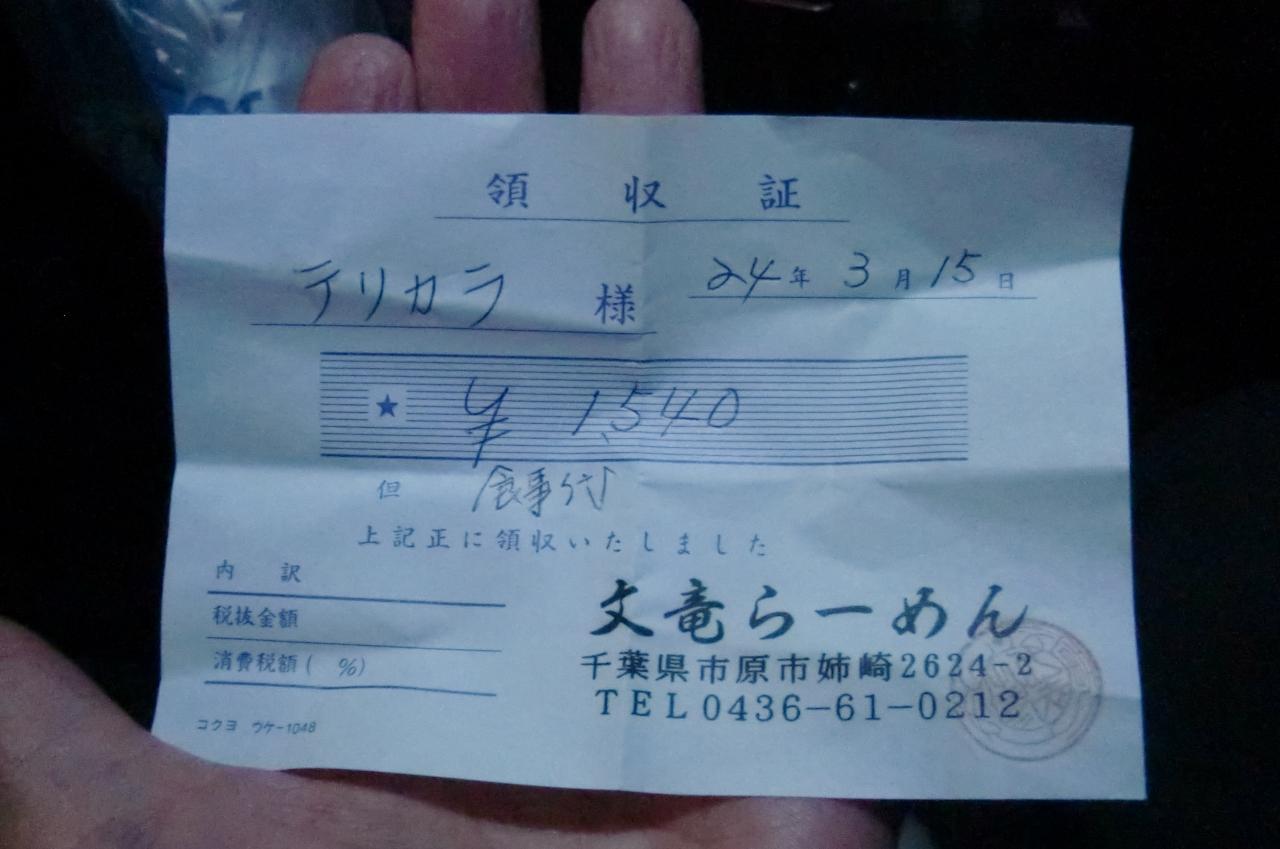 領収証
テリカラ 様
24年3月15日
★ ¥1,540
但 食事代
上記正に領収いたしました
内訳
税抜金額
消費税額( %)
コクヨ ウケ-1048
文竜らーめん
千葉県市原市姉崎2624-2
TEL0436-61-0212